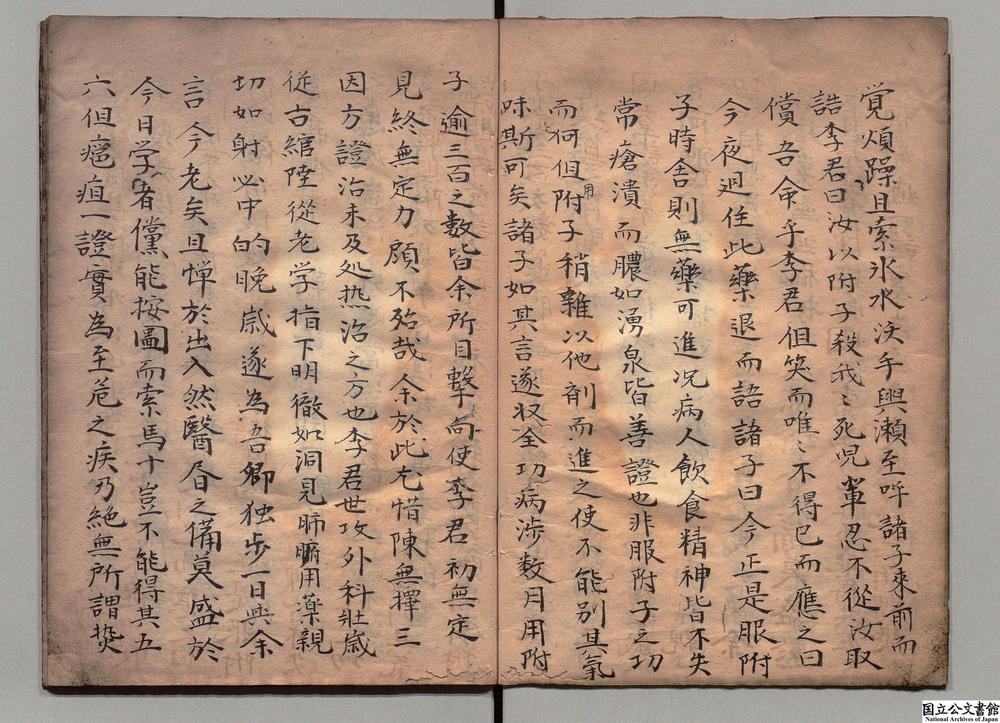 覚煩躁且索氷水沃手與瀬至呼諸子来前而
誥李君曰汝以附子殺我〻死児軰忍不從汝取
償吾命乎李君但笑而唯〻不得已而應之曰
今夜迥住此藥退而語諸子曰今正是服附
子時舎則無藥可進况病人飲食精神皆不失
常瘡潰而膿如湧泉皆善證也非服附子之功
而何但用附子稍雜以他剤而進之使不能別其氣
味斯可矣諸子如其言遂収全功病渉数月用附
子逾三百之数皆余所目擊向使李君初無定
見終無定力顧不殆哉余於此尢惜陳無擇三
因方證治未及処热治之方也李君世攻外科壯歳
從古綰陸從老学指下明徹如洞見肺腑用薬親
切如射必中的晩歳遂為吾郷独歩一日與余
言今老矣且憚於出入然醫唇之備莫盛於
今日学者儻能按圖而索馬十豈不能得其五
六但瘡疽一證實為至危之疾乃絶無所謂奨
国立公文書館
National Archives of Japan